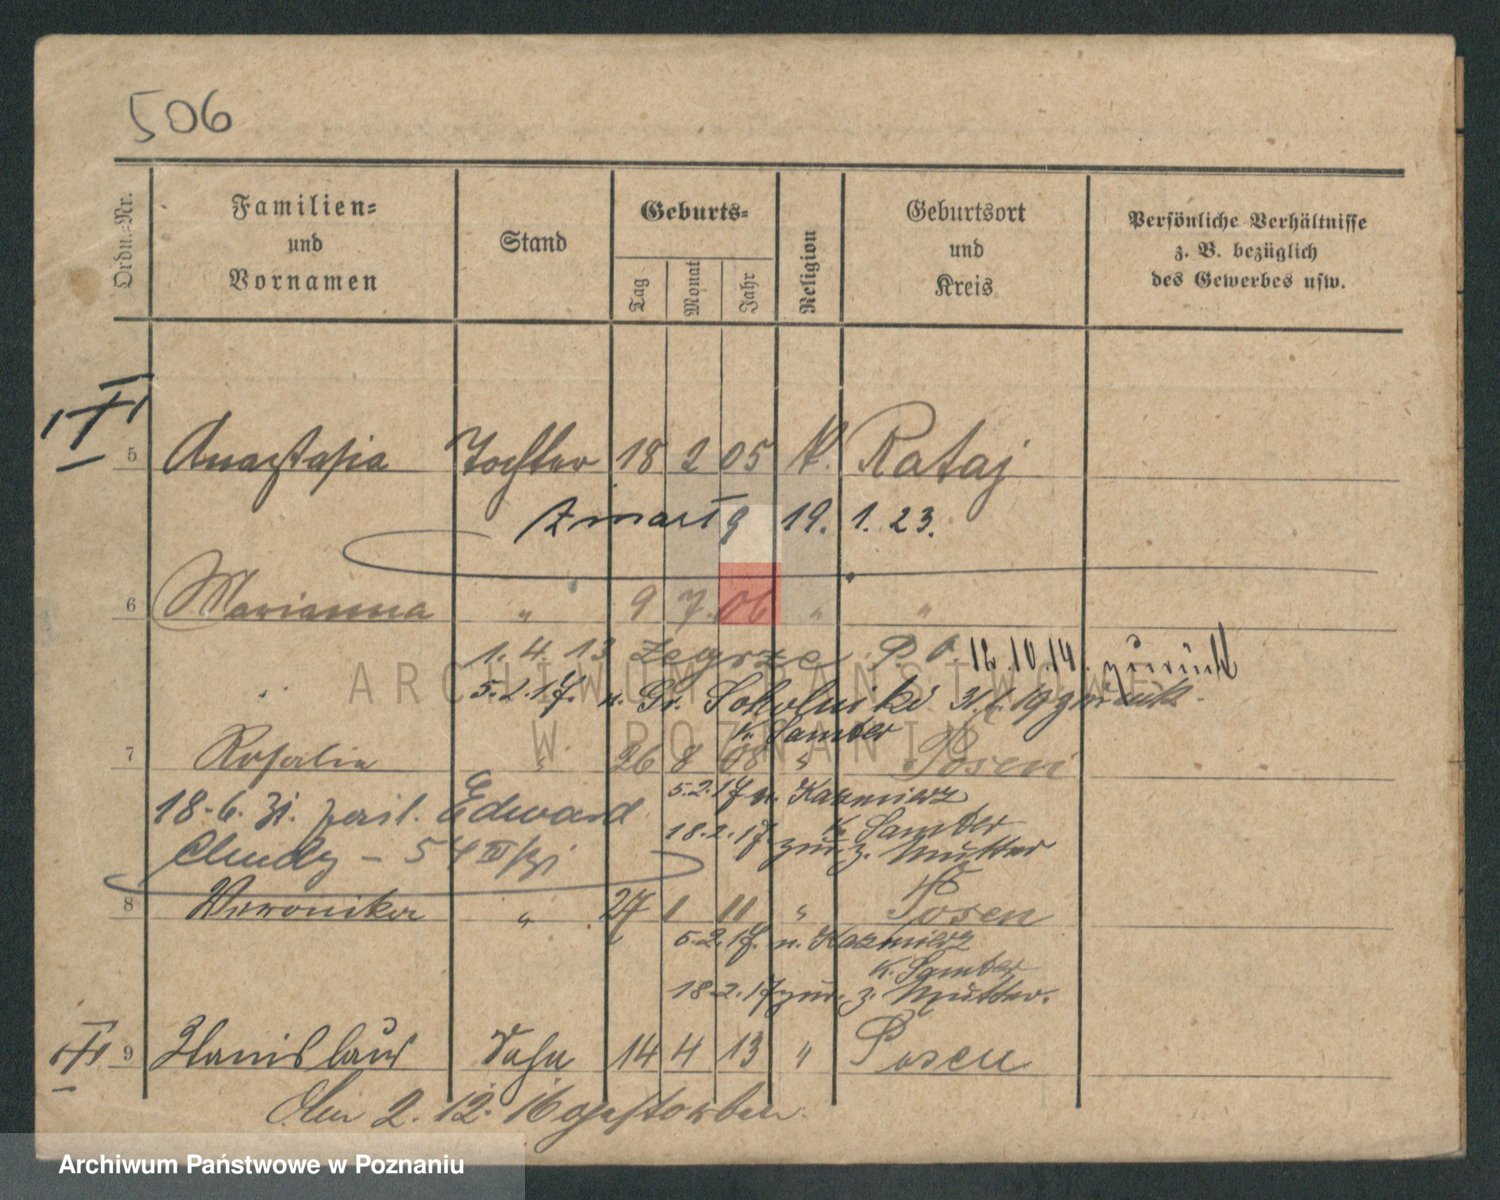 506
Ordn.-Nr.
Familien- und Vornamen
Stand
Geburts-
Tag
Monat
Jahr
Religion
Geburtsort und Kreis
Persönliche Verhältnisse z. B. bezüglich des Gewerbes usw.
5 Anastasia Tochter 18 2 05 K. Rataj
zmarł 19. 1. 23.
6 Marianna " 9 7. 06 " "
1. 4. 13 Zegrze P. O. 12.10.14. zurück
5.2.17. n. Gr. Sokolniki 31.1.19 zurück.
K. Samter
7 Rosalie " 26 8 08 " Posen
5.2.17 n. Kazmierz
18-6.31. Edward
K. Samter
18.2.17 zur. z. Mutter
Chudy - 54
8 Weronika " 27 1 11 " Posen
5.2.17. n. Kazmierz
K. Samter
18.2.17 zur. z. Mutter.
9 Stanislaus Sohn 14 4 13 " Posen
Am 2. 12. 16 gestorben.
ARCHIWUM PAŃSTWOWE
W POZNANIU
Archiwum Państwowe w Poznaniu